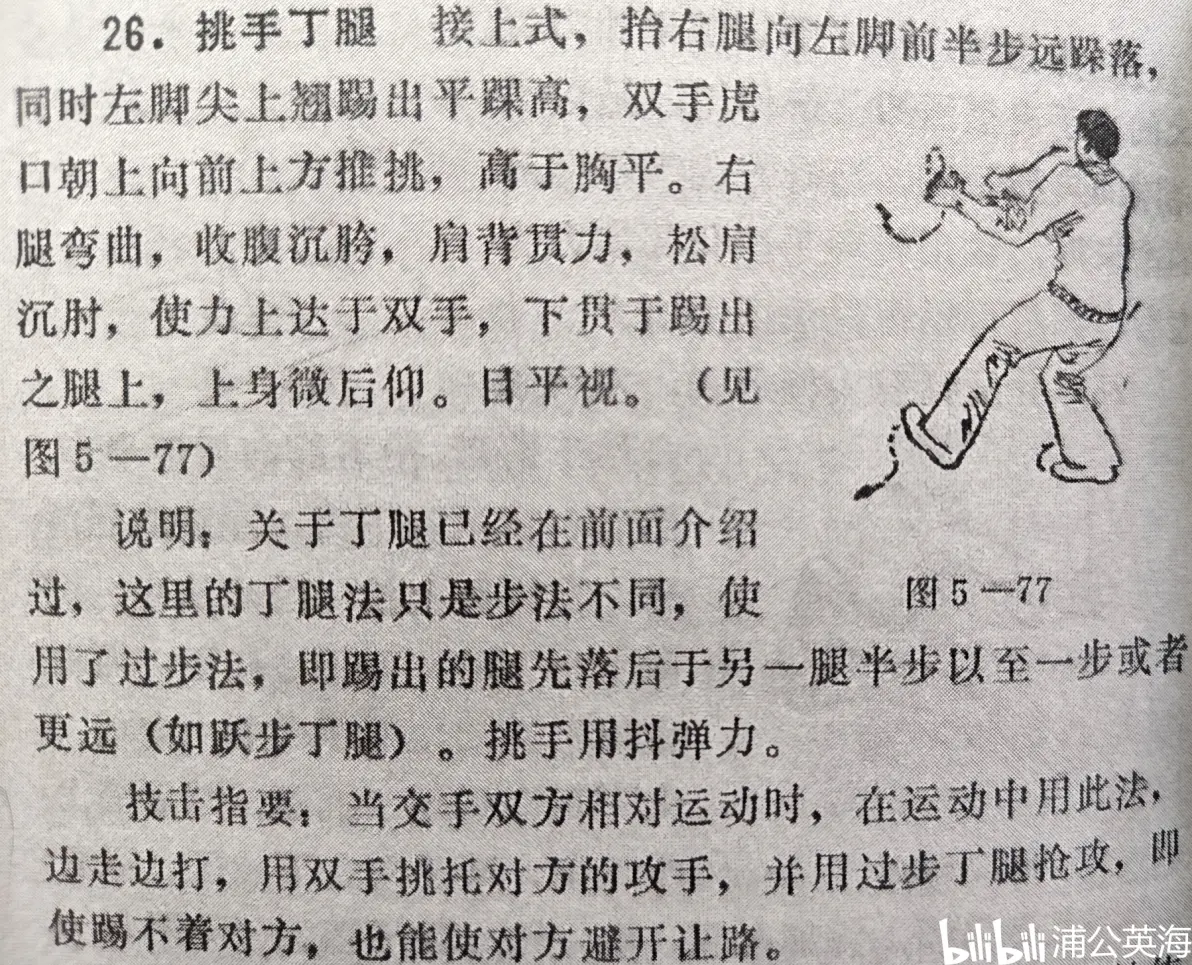 26. 挑手丁腿 接上式，抬右腿向左脚前半步远跺落，
同时左脚尖上翘踢出平踝高，双手虎
口朝上向前上方推挑，高于胸平。右
腿弯曲，收腹沉胯，肩背贯力，松肩
沉肘，使力上达于双手，下贯于踢出
之腿上，上身微后仰。目平视。（见
图5—77）
图5—77
说明：关于丁腿已经在前面介绍
过，这里的丁腿法只是步法不同，使
用了过步法，即踢出的腿先落后于另一腿半步以至一步或者
更远（如跃步丁腿）。挑手用抖弹力。
技击指要：当交手双方相对运动时，在运动中用此法，
边走边打，用双手挑托对方的攻手，并用过步丁腿抢攻，即
使踢不着对方，也能使对方避开让路。
bilibili 浦公英海